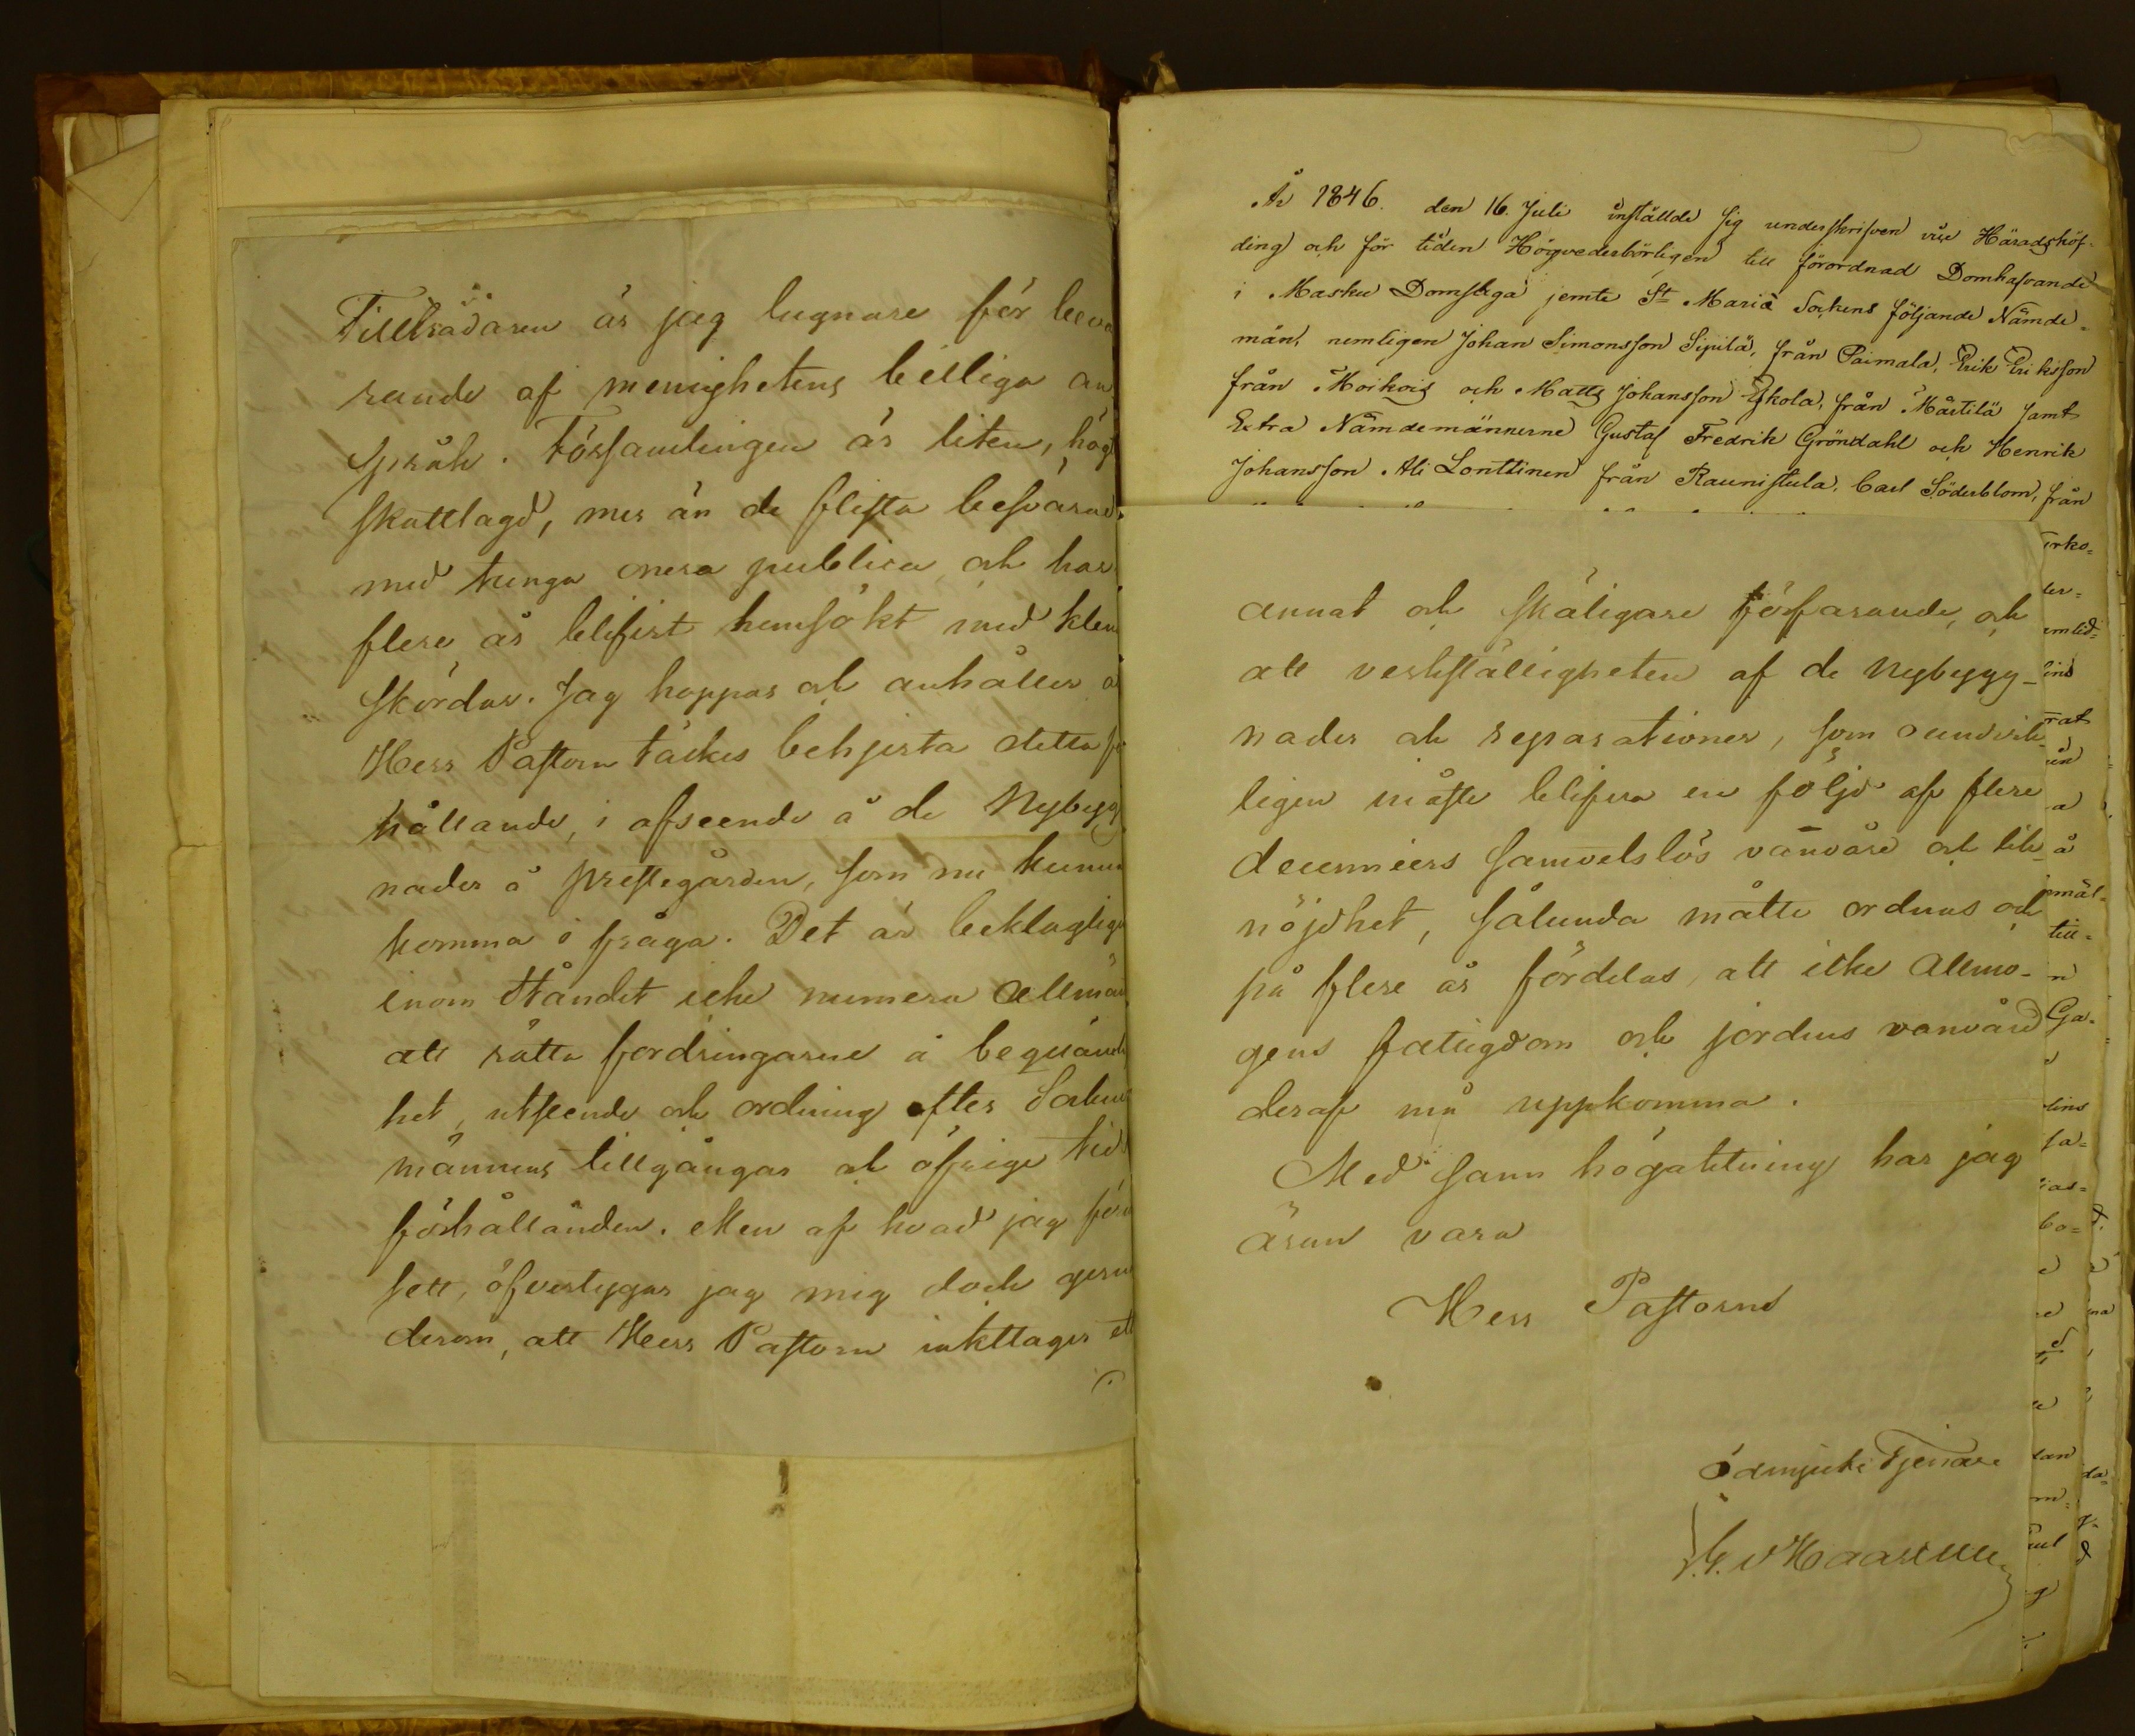 Tillträdaren är jag lugnare för beva
rande af menighetens billiga an
språk. Församlingen är liten, högt
skattlagd, mer än de flesta besvärad
med tunga onera publica, och har
flere år blifvit hemsökt med klen
skördar. Jag hoppas och anhåller
Herr Pastorn täckes behjerta detta
hållande, i afseende å de Nybygg
nader å prestegården, som nu kunna
komma i fråga. Det är beklagligt
inom Ståndet icke numera allmän
att rätta fordringarne å beqväm
het, utseende och ordning efter Socken
männens tillgångar och öfriga tids
förhållanden. Men af hvad jag
sett, öfvertygar jag mig dock gerna
derom, att Herr Pastorn iakttager ett
År 1846. den 16. Juli inställde sig underskrifven vice Häradshöf-
ding och för tiden Högvederbörligen till förordnad Domhafvande
i Masku Domsaga jemte St Mariæ Sockens följande Nämde-
män, nemligen Johan Simonsson Sipilä, från Paimala, Erik Eriksson
från Moikois och Matts Johansson Eskola, från Märtilä samt
Extra Nämdemännerne Gustaf Fredrik Gröndahl och Henrik
Johansson Ali Lonttinen från Raunistula, Carl Söderblom, från
annat och skäligare förfarande, och
att verkställigheten af de Nybygg-
nader och reparationer, som oundvik-
ligen måste blifva en följd af flere
decenniers samvetslös vanvård och lik-
nöjdhet, sålunda måtte ordnas och
på flere år fördelas, att icke Allmo-
gens fattigdom och jordens vanvård
deraf må uppkomma.
Med sann högaktning har jag
äran vara
Herr Pastorns
ödmjuke Tjenare